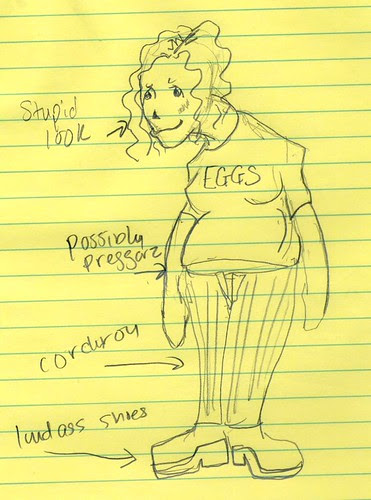 Stupid
look
EGGS
possibly
preggorz
corduroy
loud ass shoes